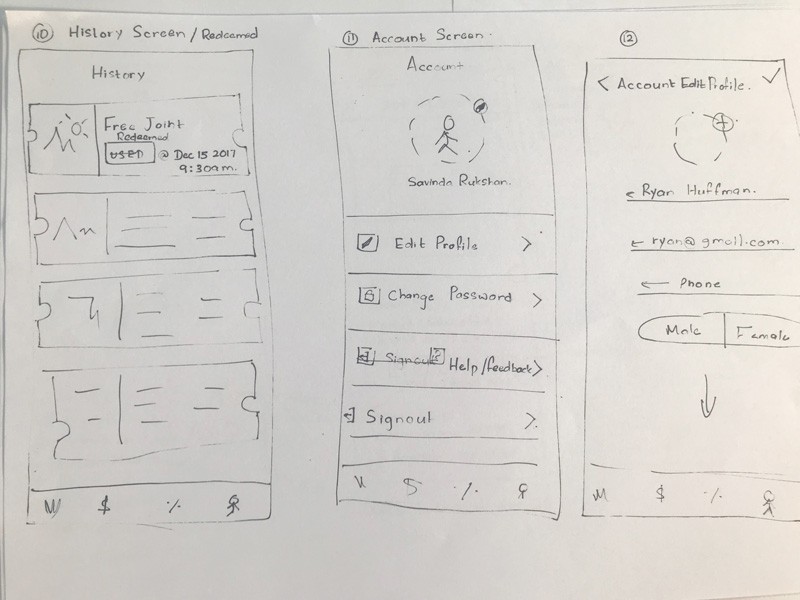 10 History Screen / Redeemed
History
Free Joint
Redeemed
USED @ Dec 15 2017
9:30am.
$ %
11 Account Screen.
Account
Savinda Rukshan.
Edit Profile >
Change Password >
Signout Help/feedback >
Signout >
$ %
12
< Account Edit Profile. ✓
+
← Ryan Huffman.
← ryan@gmail.com
← Phone
Male Female
↓
M $ %